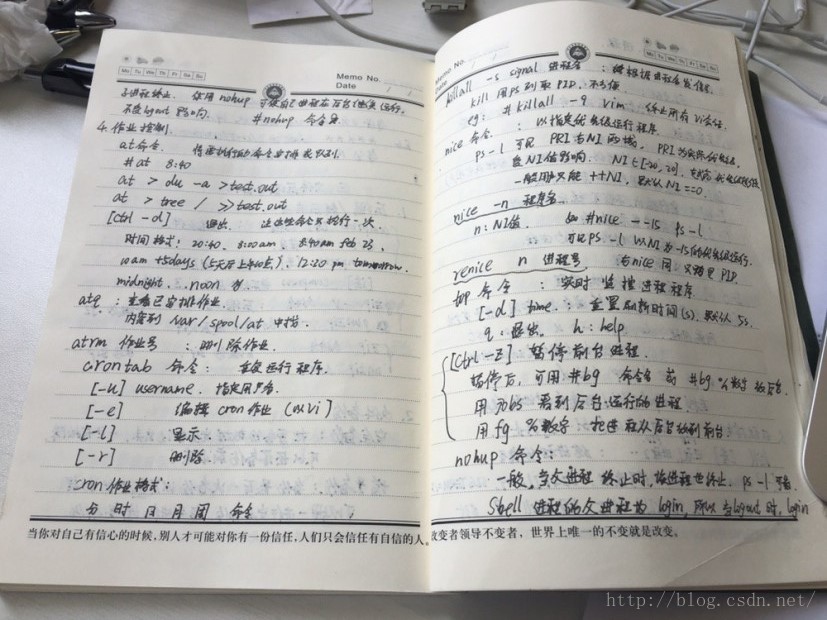 Mo Tu We Th Fr Sa Su
Memo No.
Date / /
子进程终止. 使用 nohup 可使自己进程在后台继续运行.
不受 logout 影响. #nohup 命令名
4. 作业控制
at 命令.
#at 8:40
at > du -a > test.out
at > tree / >> test.out
[Ctrl -d] 退出. 这些命令只执行一次.
时间格式: 20:40, 8:00am 8:40am feb 23,
10am +5days (5天后上午10点), 12:30 pm tomorrow.
midnight, noon 等.
atq : 查看已安排作业
内容到 /var/spool/at 中找.
atrm 作业号 : 删除作业.
crontab 命令: 重复运行程序.
[-u] username. 指定用户名.
[-e] 编辑 cron 作业 (vi)
[-l] 显示
[-r] 删除
cron 作业格式:
分 时 日 月 周 命令
当你对自己有信心的时候,别人才可能对你有一份信任,人们只会信任有自信的人。
Mo Tu We Th Fr Sa Su
Memo No.
Date / /
killall -s signal 进程名 : 能根据进程名发信号.
kill 用ps到取PID. 不方便
eg: #killall -9 vim 终止所有vi会话.
nice 命令. : 以指定优先级运行程序.
ps -l 可见 PRI与NI两域, PRI为实际优先级,
受NI值影响. NI∈[-20, 20].
一般用户只能 ++NI, 默认NI==0.
nice -n 程序名
n: NI值. 如 #nice --15 ps -l
可见 ps -l 以NI为-15的优先级运行.
renice n 进程号 与nice同 只指定PID.
top 命令 : 实时监控进程程序.
[-d] time. : 重置刷新时间(s). 默认5s.
q: 退出. h: help
[Ctrl -Z] 暂停前台进程.
暂停后, 可用 #bg 命令名 或 #bg %数字 放后台.
用 jobs 看到后台运行的进程
用 fg %数字 把进程从后台放到前台.
nohup 命令:
一般, 当父进程终止时, 子进程也终止. ps -l 可看
Shell 进程的父进程为 login, 所以当logout时, login
改变者领导不变者,世界上唯一的不变就是改变。
http://blog.csdn.net/